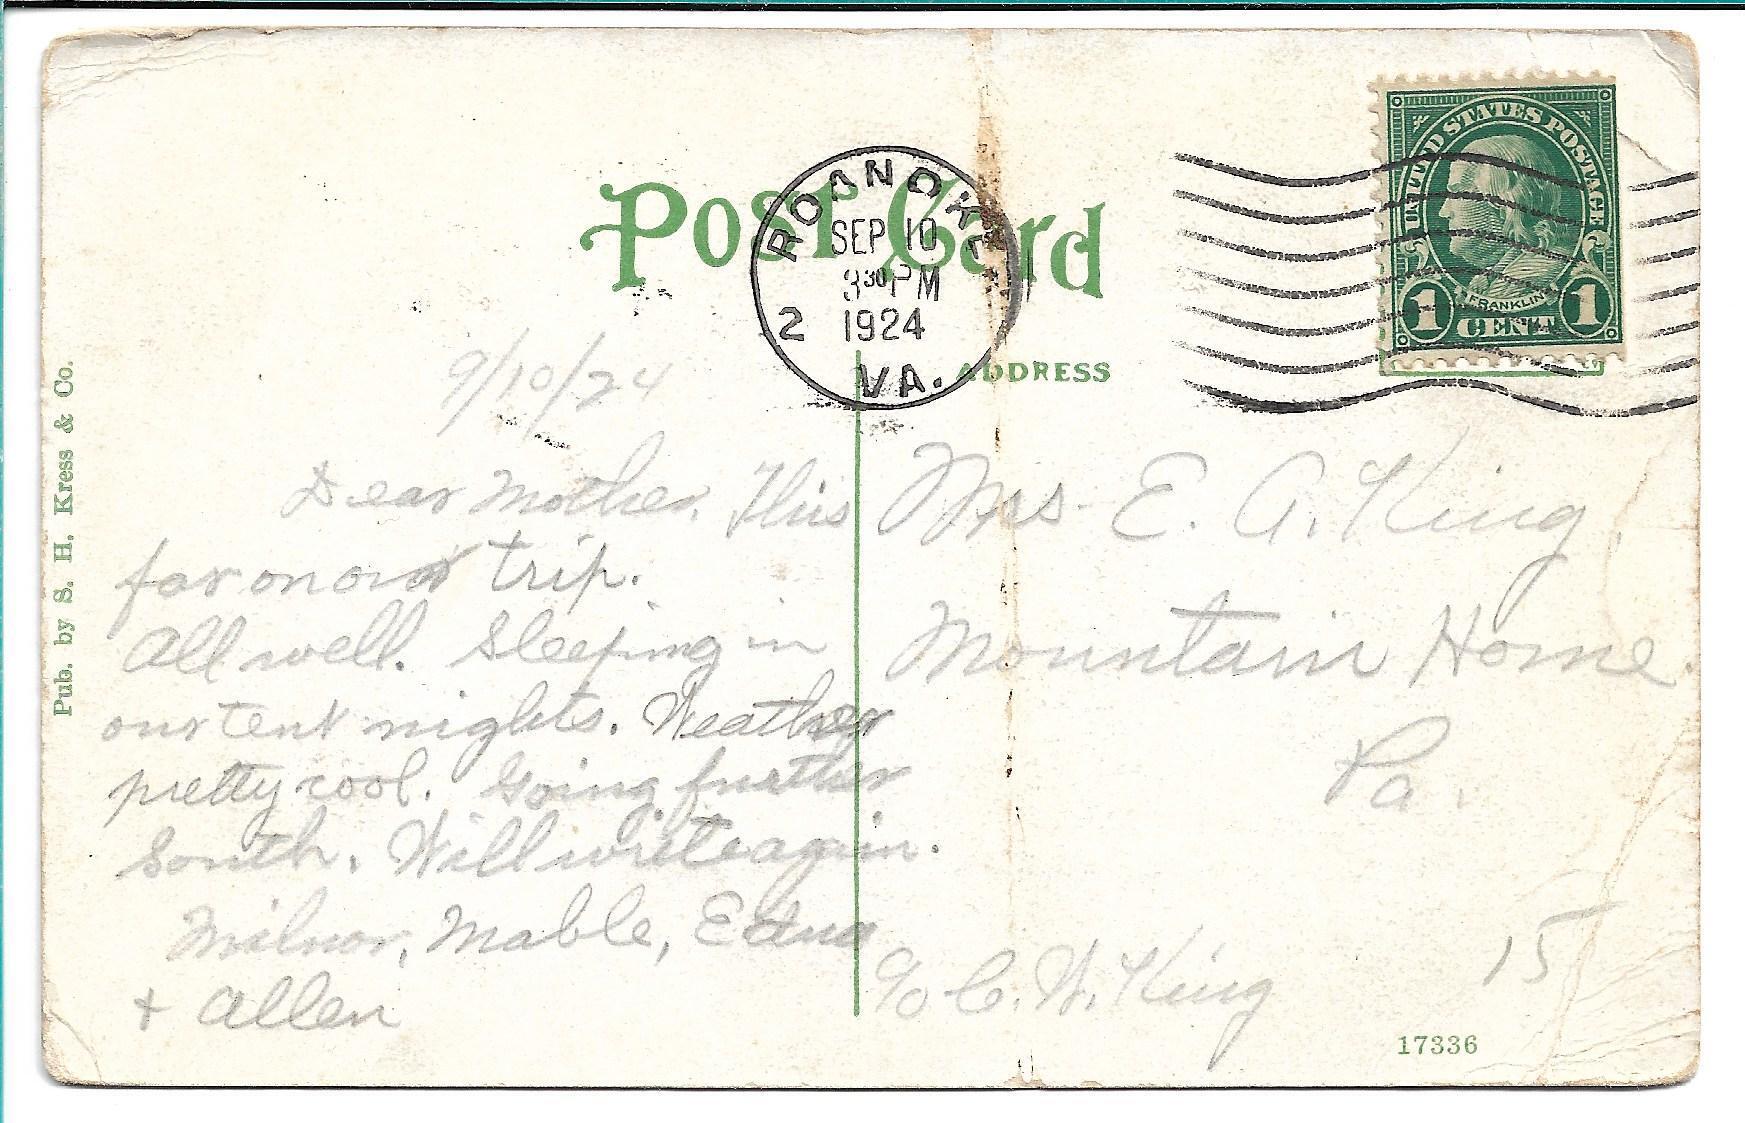 Post Card
ROANOKE
SEP 10
3 30 PM
1924
2
VA.
UNITED STATES POSTAGE
FRANKLIN
1 CENT 1
ADDRESS
Pub. by S. H. Kress & Co.
9/10/24
Dear Mother. This
far on our trip.
All well. Sleeping in
our tent nights. Weather
pretty cool. Going further
South. Will write again.
Milnor, Mable, Edna
+ Allen
Mrs E. A. King
Mountain Home.
Pa.
c/o C. W. King
15
17336